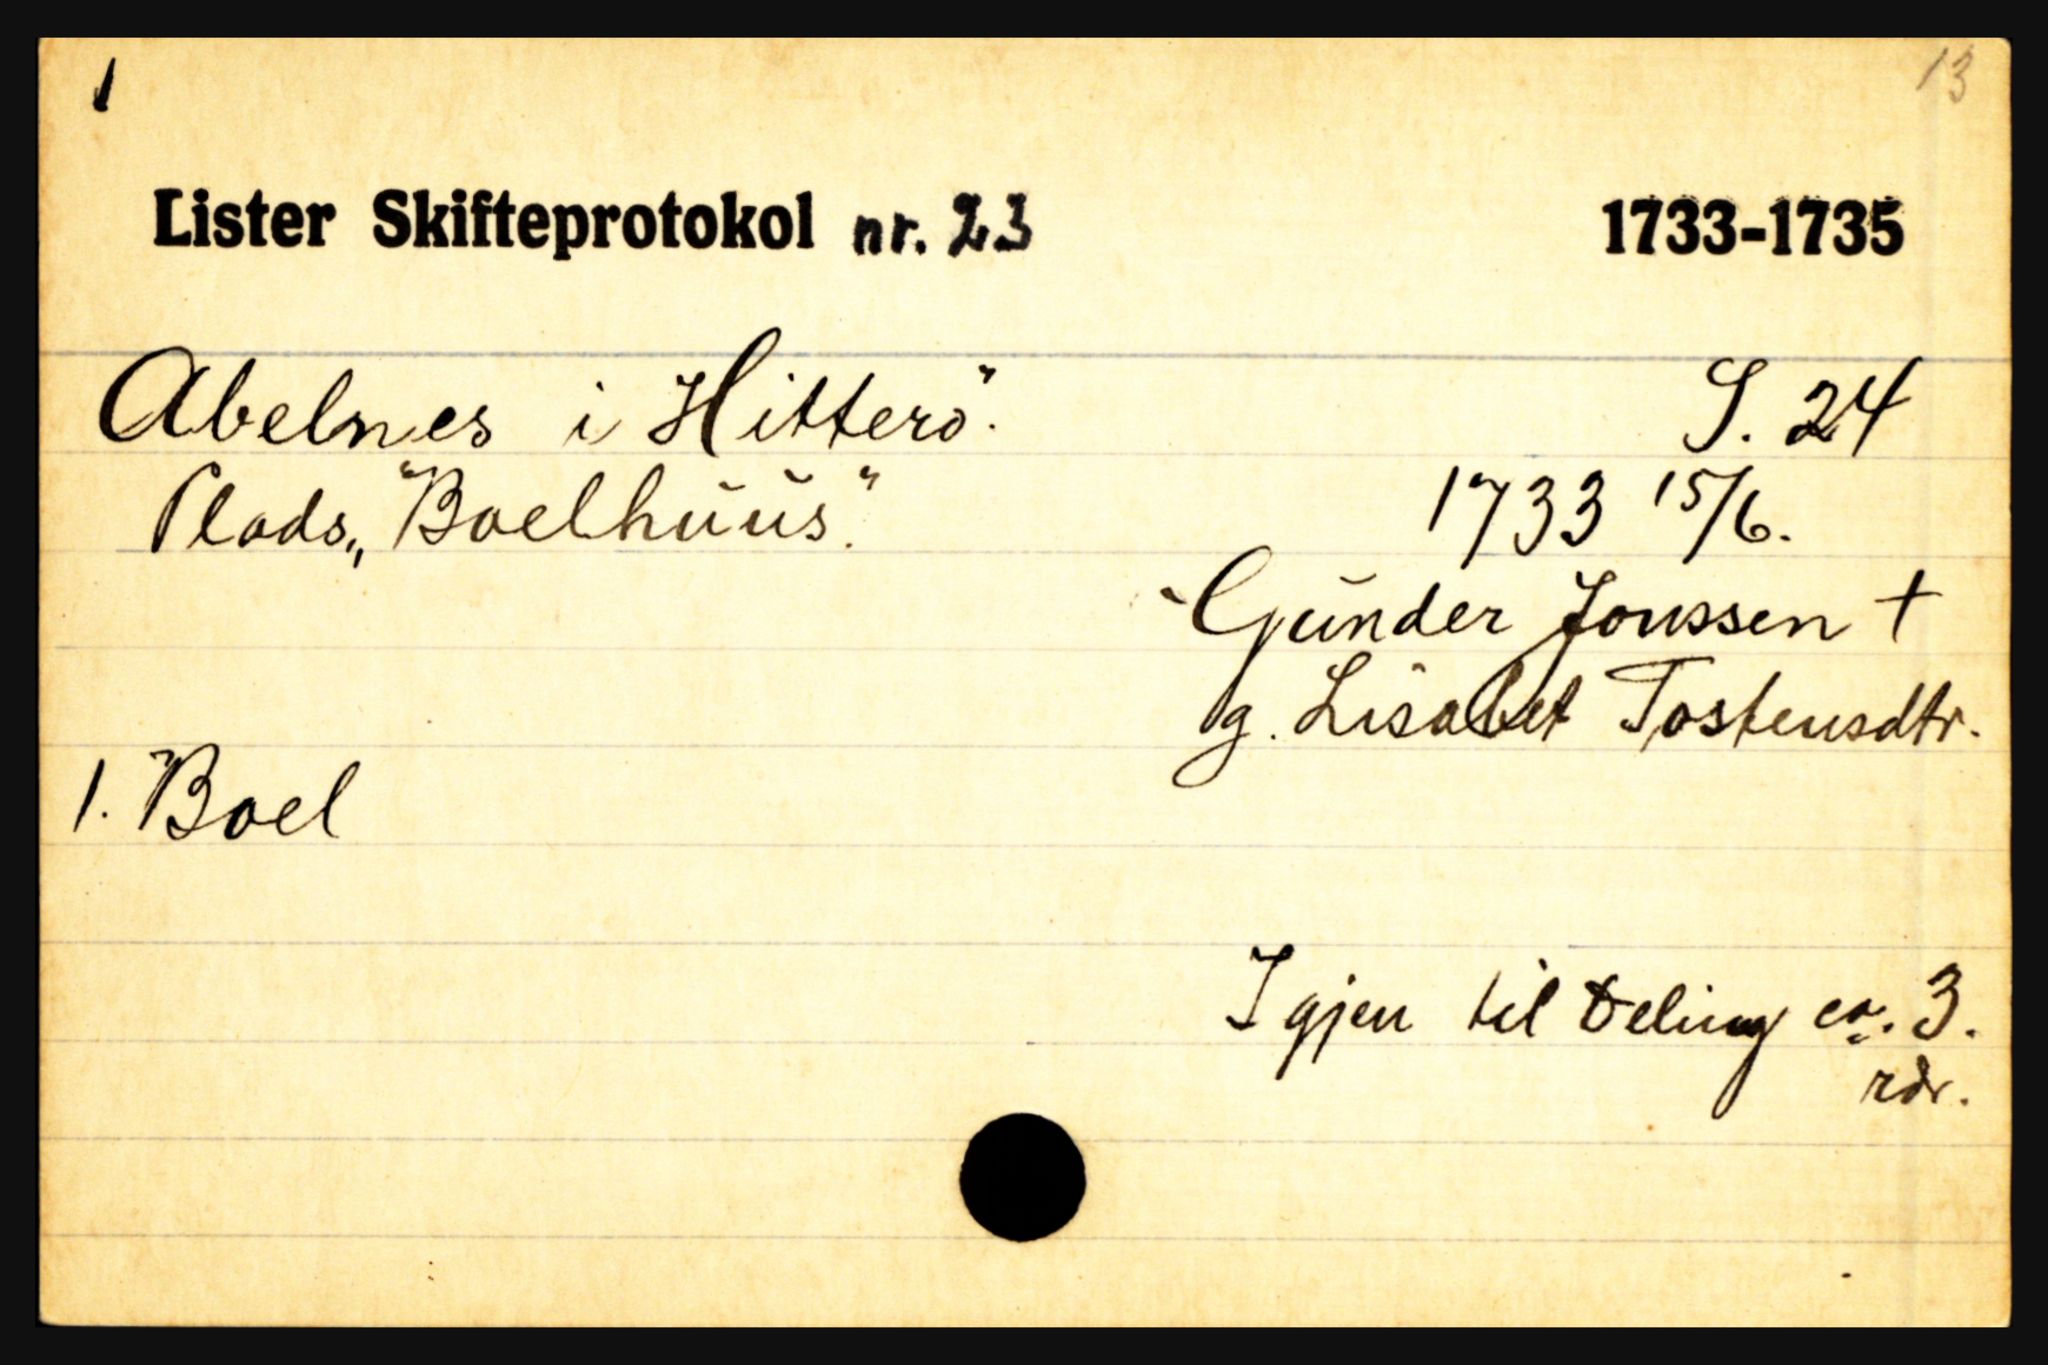 1 13
Lister Skifteprotokol nr. 23 1733-1735
Abelnes i Hitterö. S. 24
Plads„ "Boelhuus." 1733 15/6.
Gunder Jonssen +
g. Lisabet Tostensdtr.
1. Boel
Igjen til Deling ca. 3.
rdr.